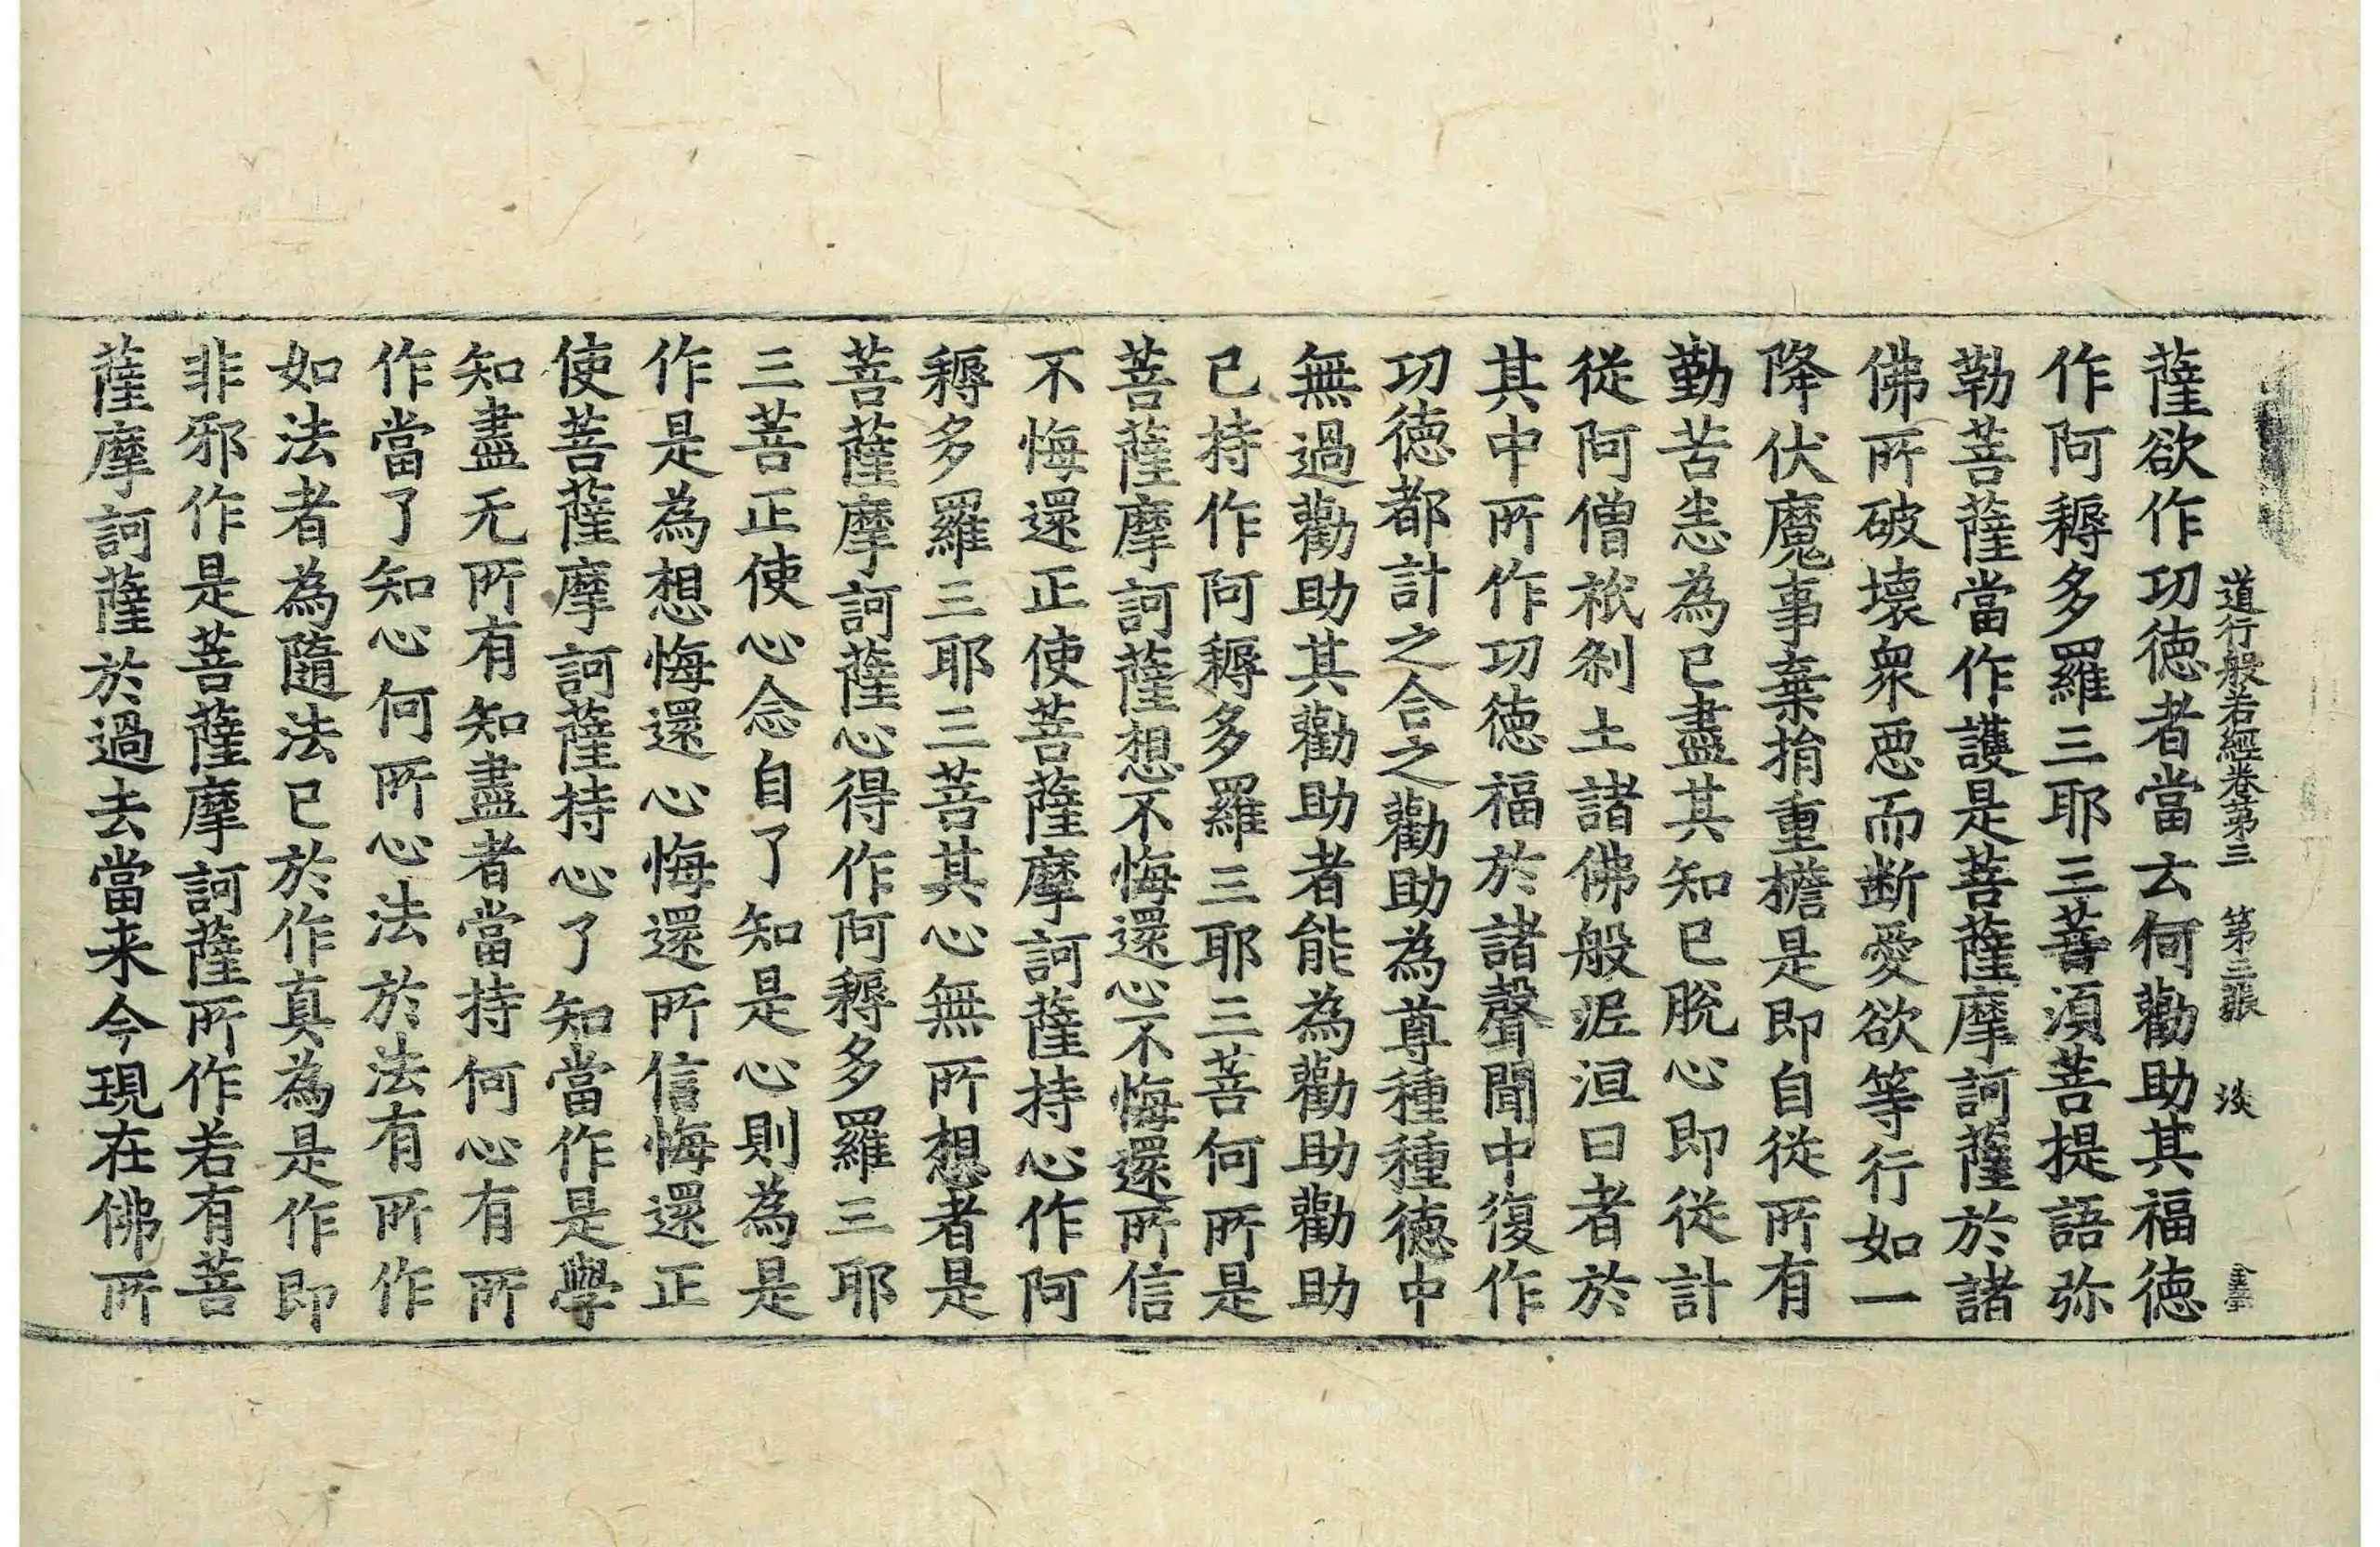 道行般若經卷第三 第三張 淡
薩欲作功徳者當云何勸助其福徳
作阿耨多羅三耶三菩湏菩提語弥
勒菩薩當作護是菩薩摩訶薩於諸
佛所破壞衆惡而断愛欲等行如一
降伏魔事棄捐重擔是即自從所有
勤苦恙為已盡其知已脫心即從計
從阿僧祇刹土諸佛般泥洹曰者於
其中所作功徳福於諸聲聞中復作
功徳都計之合之勸助為尊種種徳中
無過勸助其勸助者能為勸助勸助
已持作阿耨多羅三耶三菩何所是
菩薩摩訶薩想不悔還心不悔還所信
不悔還正使菩薩摩訶薩持心作阿
耨多羅三耶三菩其心無所想者是
菩薩摩訶薩心得作阿耨多羅三耶
三菩正使心念自了知是心則為是
作是為想悔還心悔還所信悔還正
使菩薩摩訶薩持心了知當作是學
知盡无所有知盡者當持何心有所
作當了知心何所心法於法有所作
如法者為隨法已於作真為是作即
非邪作是菩薩摩訶薩所作若有菩
薩摩訶薩於過去當来今現在佛所